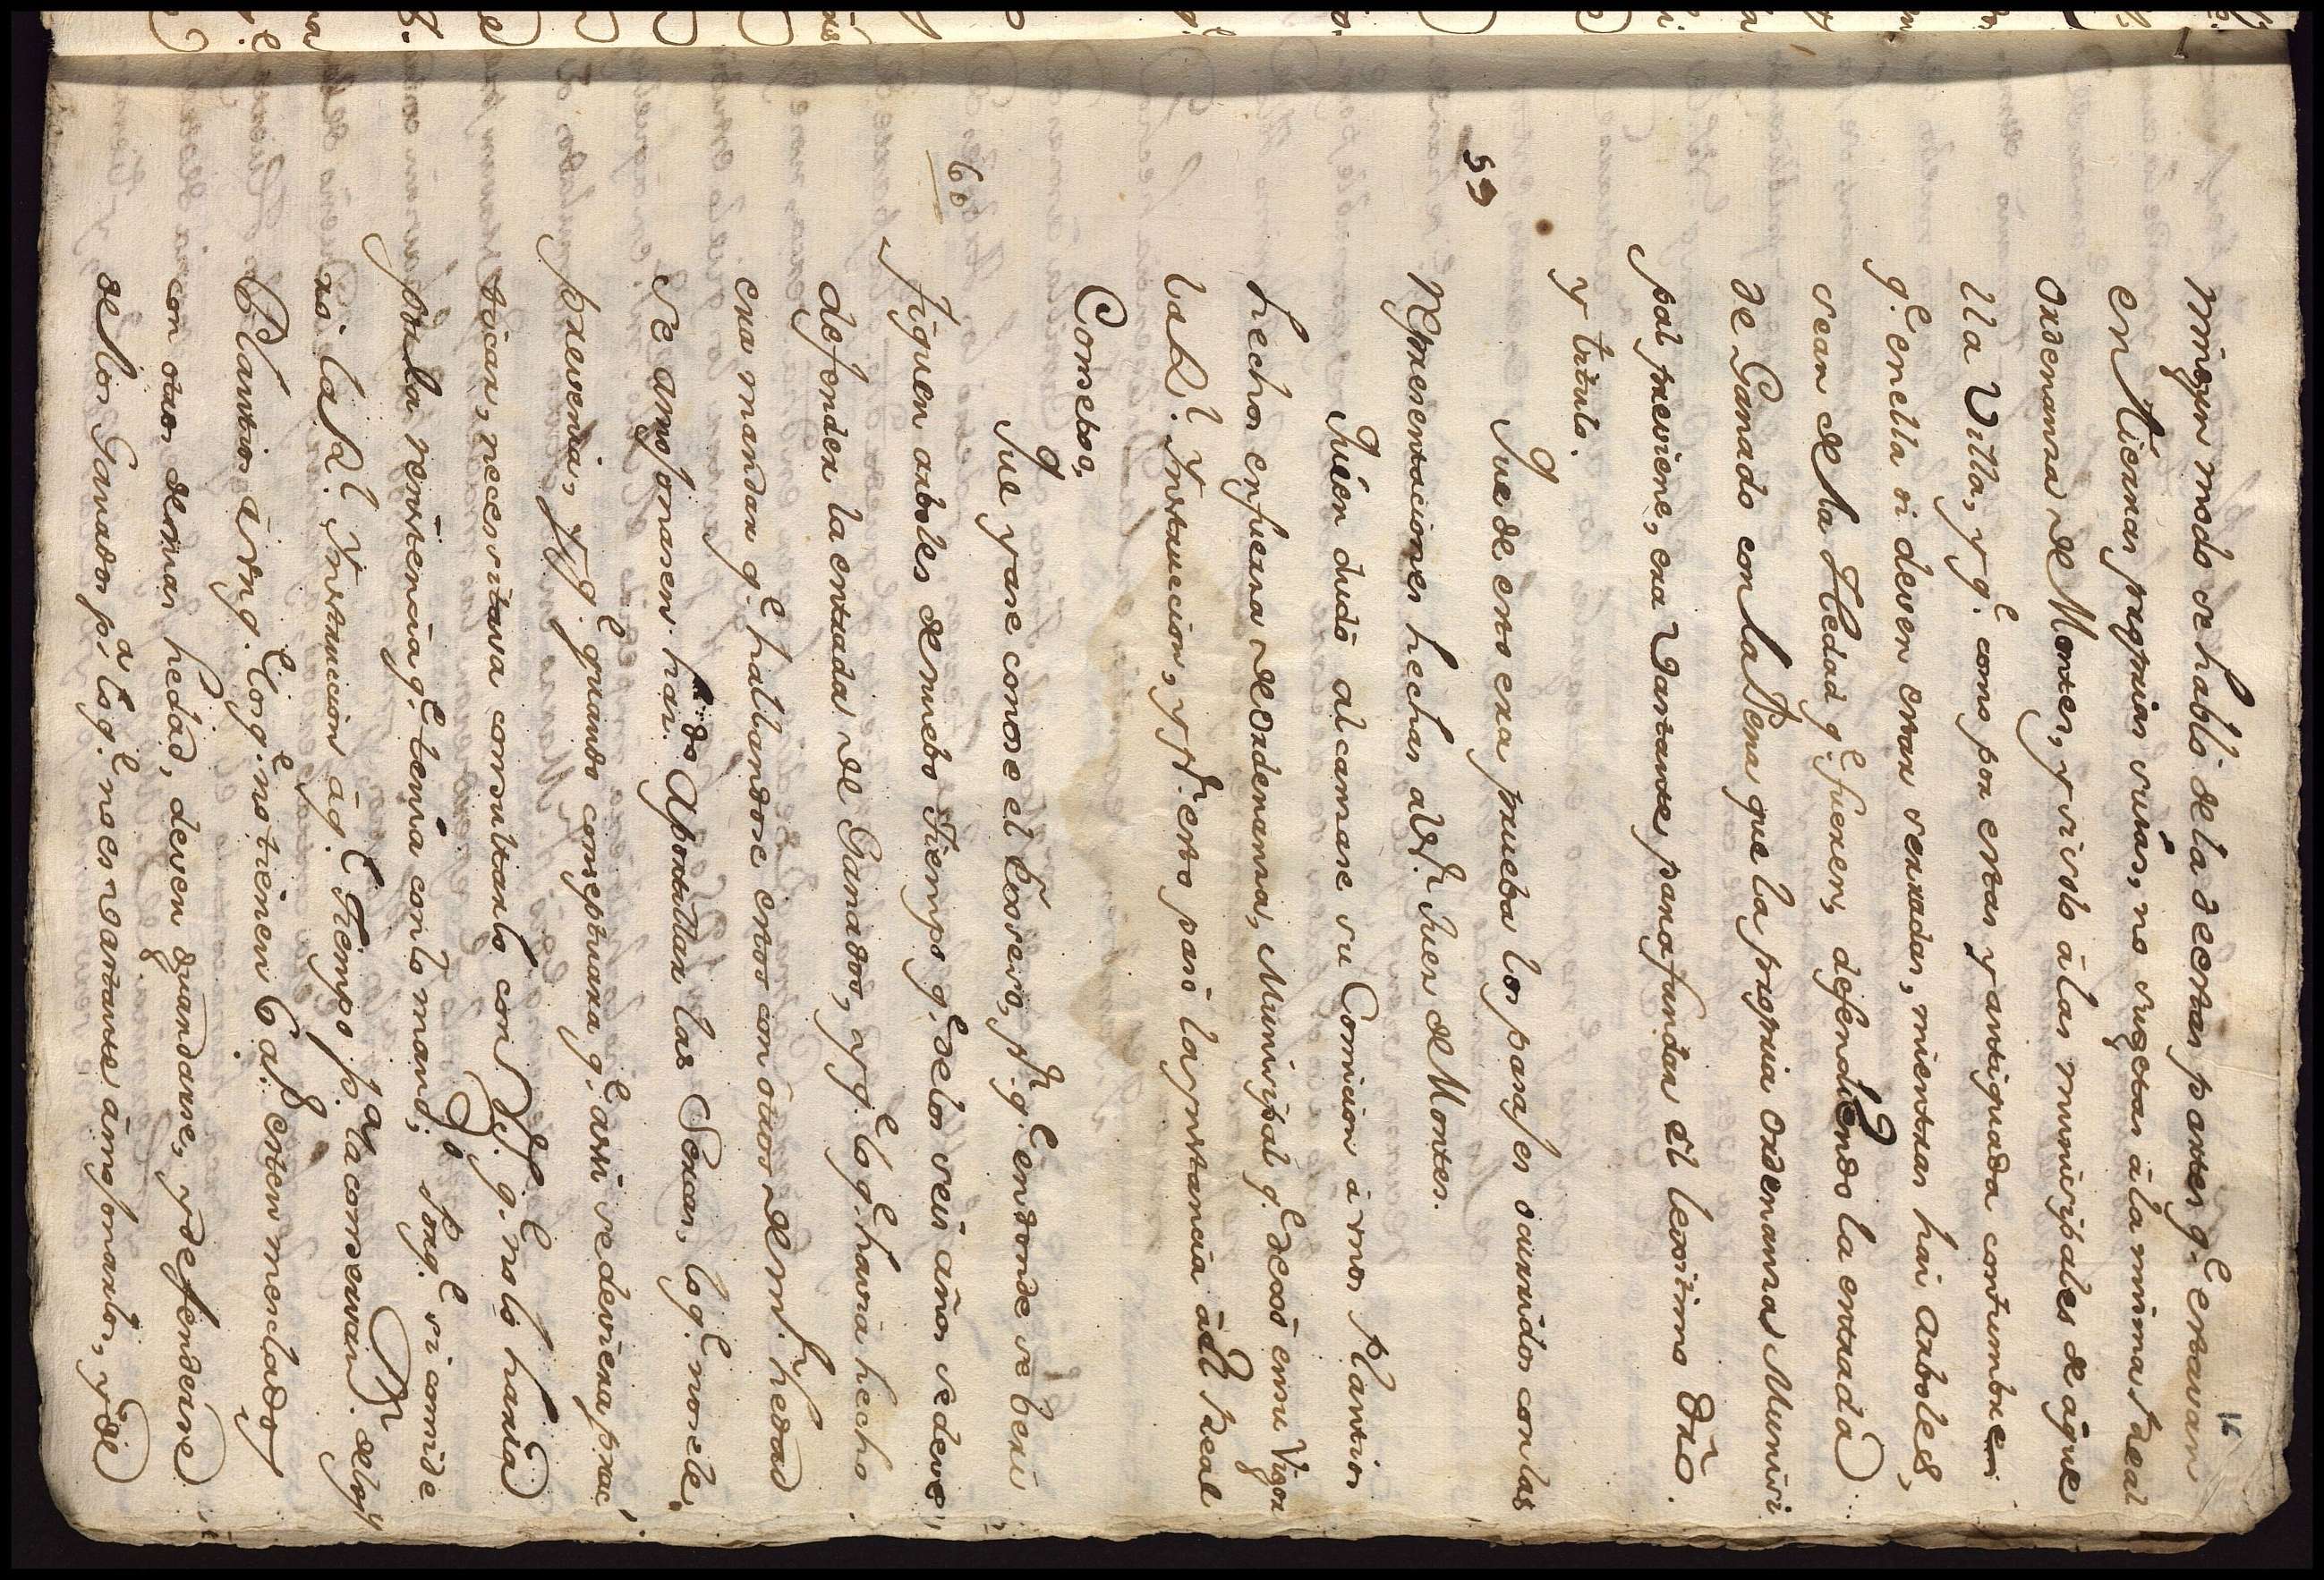 16
ningun modo se habló de la de estas partes q.e estavan
en tierras propias suias, no sugetas à la minima Real
ordenanza de Montes, y si solo à las municipales de aque
lla Villa, y q.e como por estas y antiquada costumbre
q.e en ella si deven estar serradas, mientras hai arboles,
sean de la Hedad q.e fueren, defendiendo la entrada
de Ganado con la Pena que la propria ordenanza Munici
pal previene, era vastante para fundar el lexitimo dro.
y titulo.
59
Que de esto era prueba los parages ocurridos con las
Representaciones hechas al S.r Juez de Montes.
Quien dudò alcansase su Comicion à unos Plantios
hechos en fuerza de ordenanza, Municipal q.e dexò en su Vigor
la R.l Ynstruccion, y p.r esto pasò la ynstancia àl Real
Consejo.
60
Que yà se conose el , p.r q.e en donde se beri
fiquen arboles de nuebo tiempo q.e de los seis años se deve
defender la entrada de Ganados, y q.e lo q.e havia hecho
era mandar q.e hallandose estos con otros de m.s hedad
se amojonasen. haido Aportillar las Sercas, lo q.e no se le
prevenia, y q.e quando conseptuara q.e assi se deviera prac
ticar, necessitava consultarlo con V.S. q.e no lo haria
por la renitencia q.e tenia con lo mand.do, Porq.e si comide
ro la R.l Ynstruccion à q.e tiempo p.a la conservaz.n de los
Plantios à unq.e los q.e no tienen 6 a.s esten mesclados
con otros de mas hedad, deven guardarse, y defenderse
de los Ganados p.a lo q.e no es vastante àmojonarlos, y de